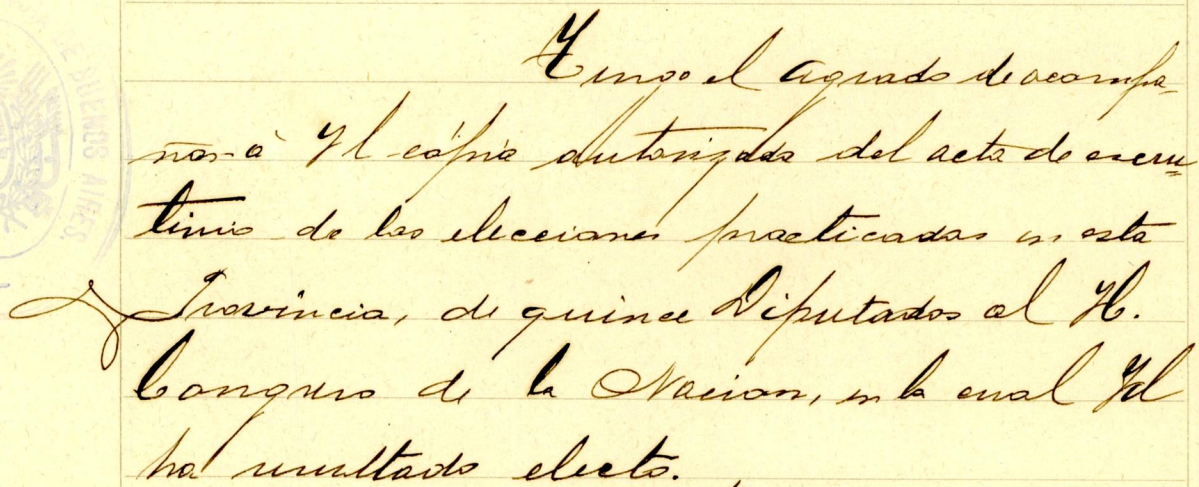 Tengo el agrado de acompa-
ñar à Vd cópia autorizada del acta de escru-
tinio de las elecciones practicadas en esta
Provincia, de quince Diputados al H.
Congreso de la Nacion, en la cual Vd
ha resultado electo.
DE BUENOS AIRES.